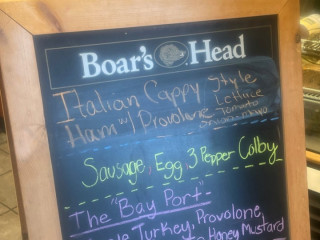 Boar's Head
Italian Cappy Style
Ham w/ Provolone Lettuce
Tomato
onion mayo
Sausage, Egg, 3 Pepper Colby
The "Bay Port"-
Turkey, Provolone,
Honey Mustard